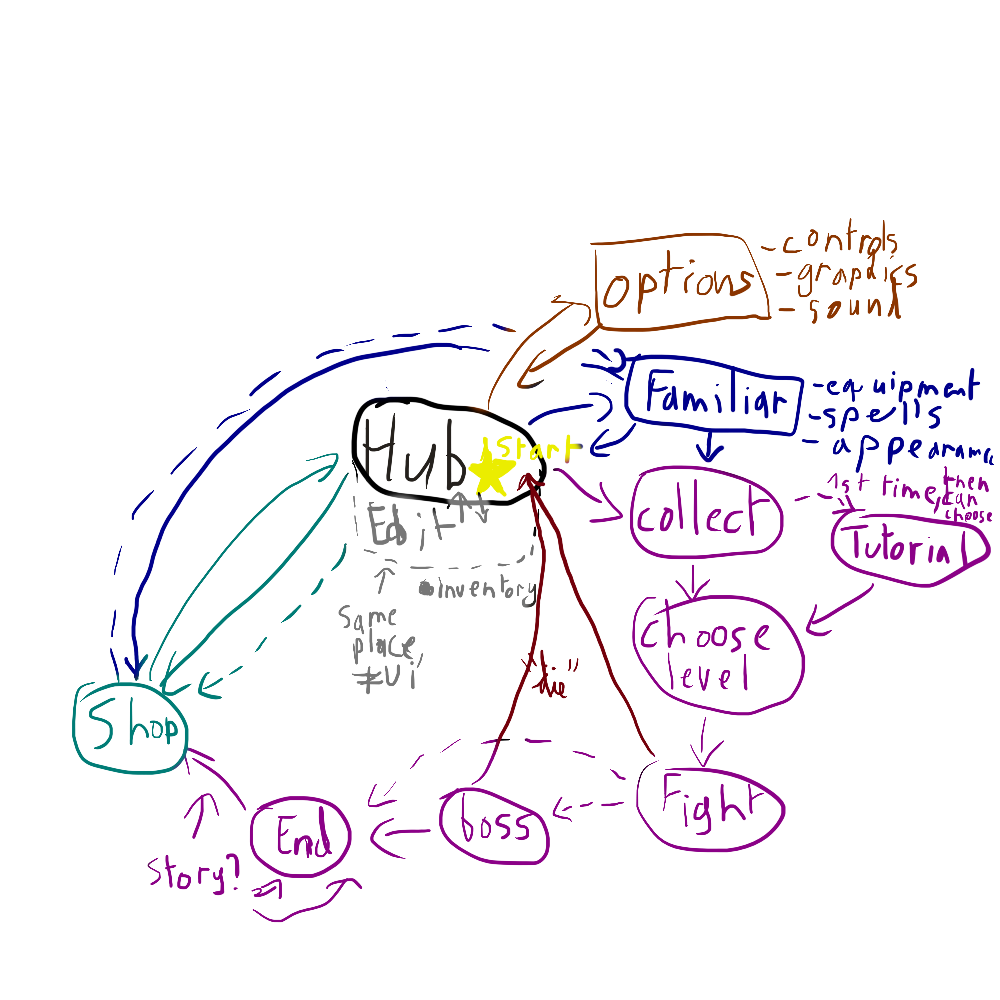 options
-controls
-graphics
-sound
Familiar
-equipment
-spells
-appearance
Hub
start
Edit
•inventory
same
place,
≠Ui
collect
1st time, then
can
choose
Tutorial
choose
level
Shop
"die"
Fight
boss
End
story?